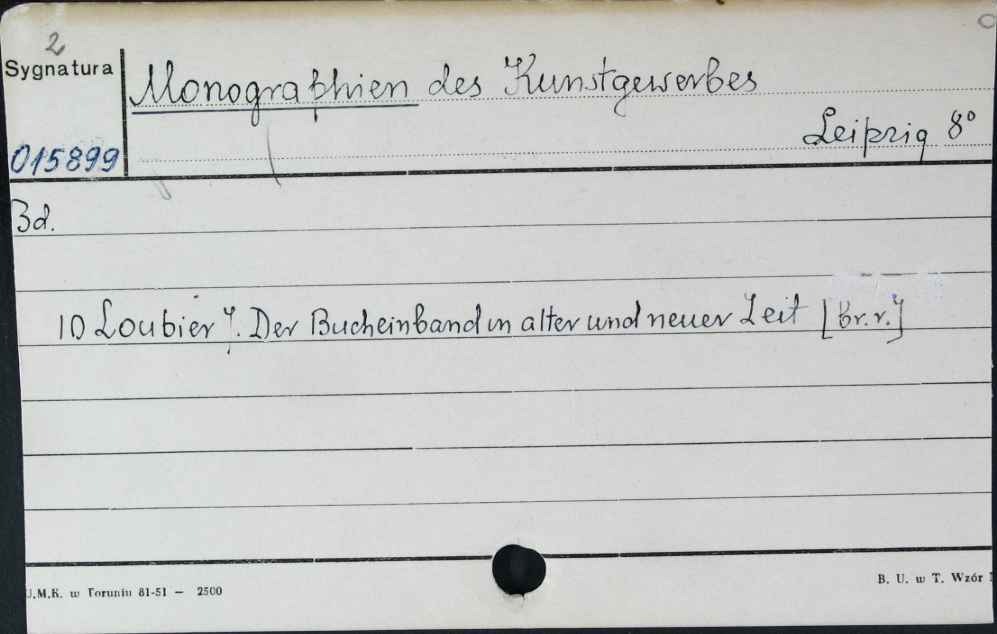 2
Sygnatura
Monographien des Kunstgewerbes
Leipzig 8°
015899
Bd.
10 Loubier J. Der Bucheinband in alter und neuer Zeit [br. r.]
U.M.K. w Toruniu 81-51 — 2500
B. U. w T. Wzór